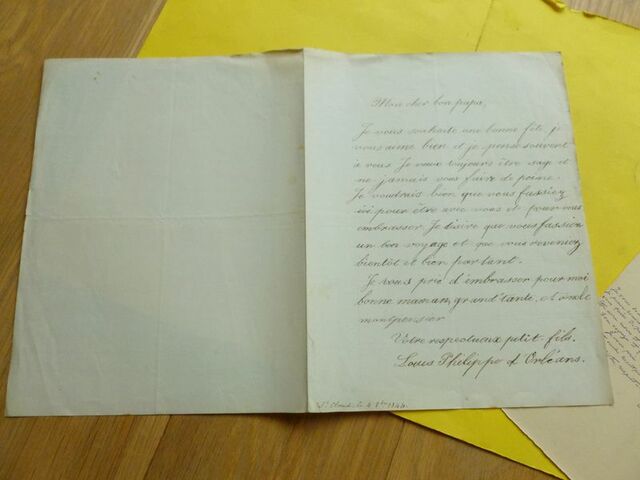 Mon cher bon papa,
Je vous souhaite une bonne fête, je
vous aime bien et je pense souvent
à vous Je veux toujours être sage et
ne jamais vous faire de peine.
Je voudrais bien que vous fussiez
ici pour être avec vous et pour vous
embrasser. Je désire que vous fassiez
un bon voyage et que vous reveniez
bientôt et bien portant.
Je vous prie d'embrasser pour moi
bonne maman, grand'tante, et oncle
montpensier
Votre respectueux petit-fils.
Louis Philippe d'Orléans.
St Cloud le 4 8bre 1844